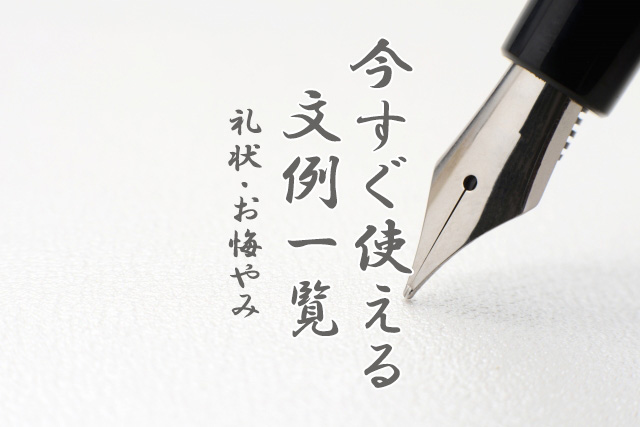 今すぐ使える
文例一覧
礼状・お悔やみ